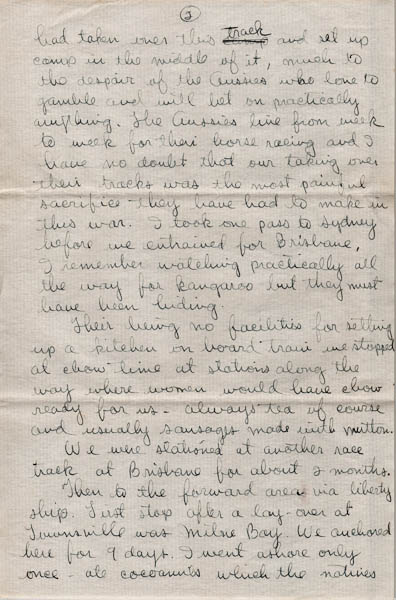 2
had taken over this track and set up
camp in the middle of it, much to
the despair of the Aussies who love to
gamble and will bet on practically
anything. The Aussies live from week
to week for their horse racing and I
have no doubt that our taking over
their tracks was the most painful
sacrifice they have had to make in
this war. I took one pass to Sydney
before we entrained for Brisbane,
I remember watching practically all
the way for kangaroo but they must
have been hiding.
Their being no facilities for setting
up a kitchen on board train we stopped
at chow-time at stations along the
way where women would have chow
ready for us - always tea of course
and usually sausages made with mutton.
We were stationed at another race
track at Brisbane for about 2 months.
Then to the forward area via liberty
ship. First stop after a lay-over at
Townsville was Milne Bay. We anchored
here for 9 days. I went ashore only
once - ate cocoanuts which the natives